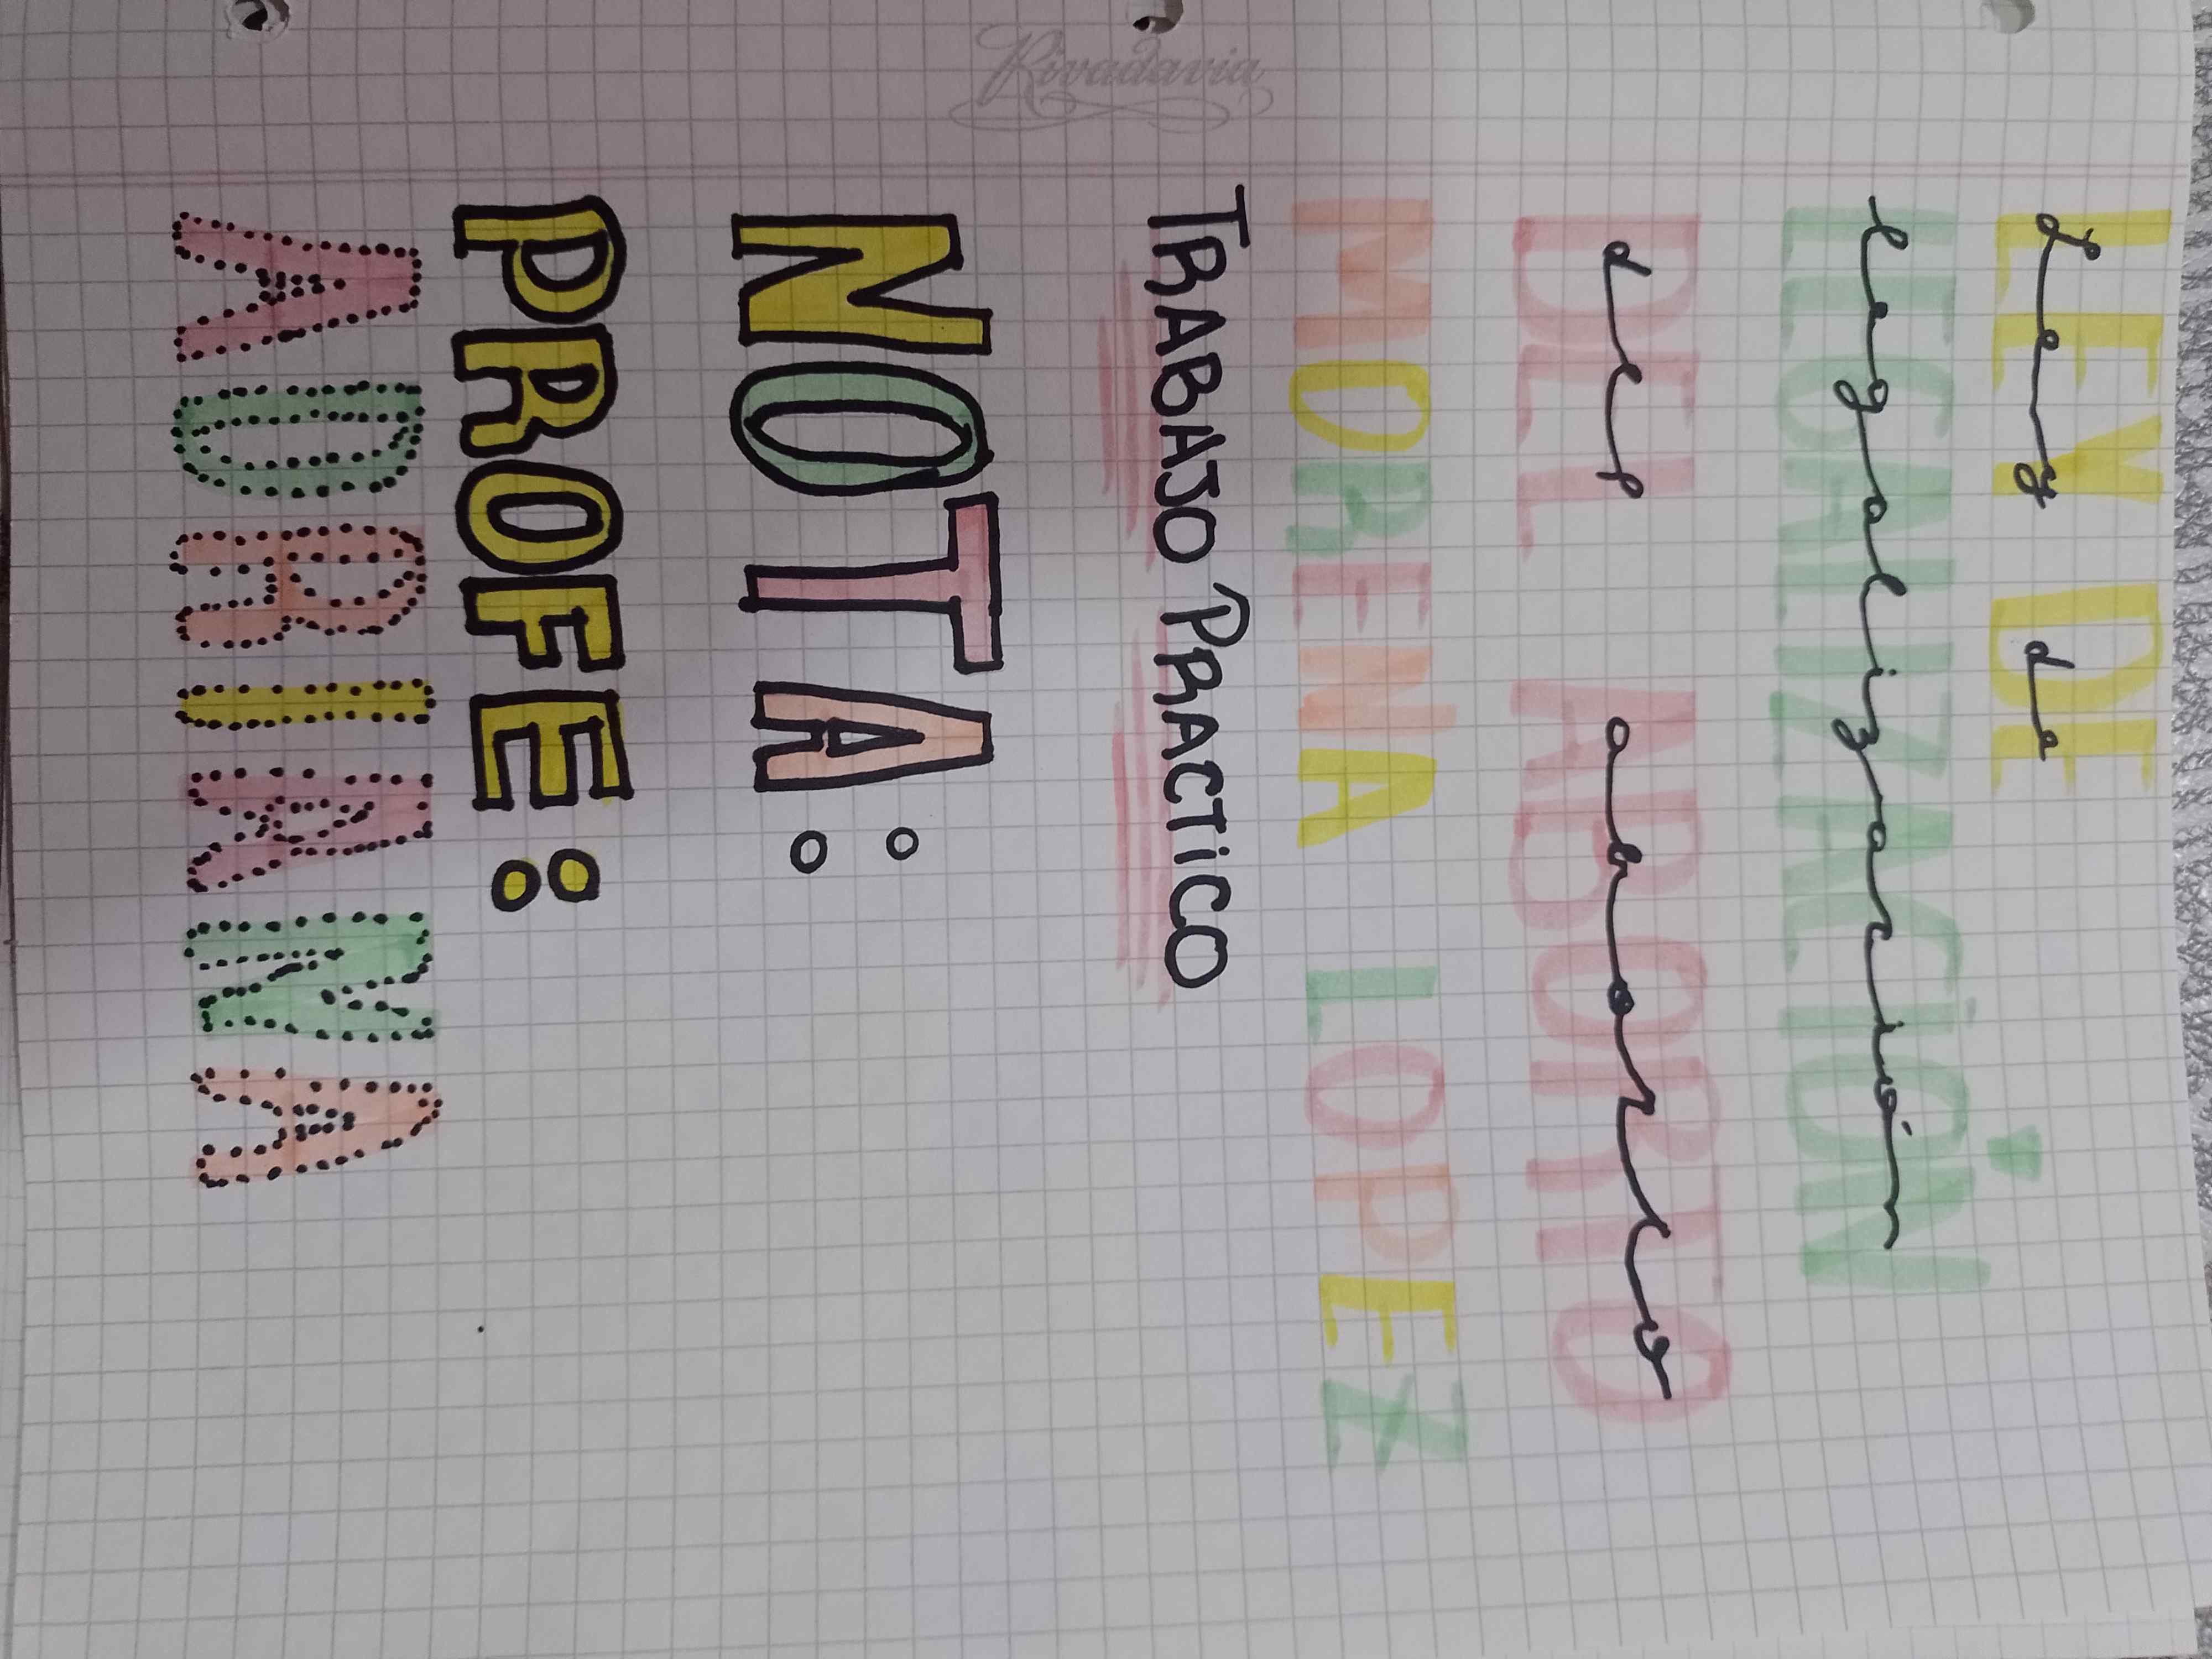 Rivadavia
LEY DE
Ley de
LEGALIZACIÓN
legalización
DEL ABORTO
del aborto
MORENA LOPEZ
TRABAJO PRACTiCO
NOTA:
PROFE:
ADRIANA